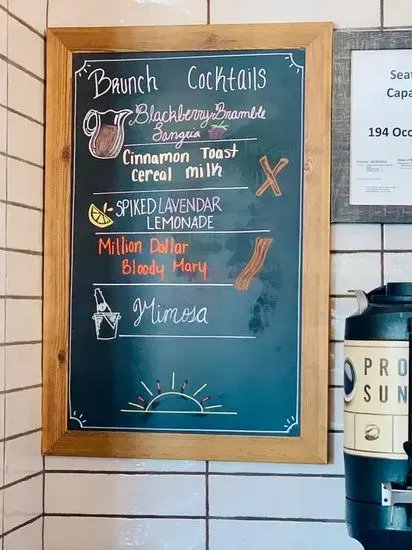 Brunch Cocktails
Blackberry Bramble
Sangria
Cinnamon Toast
Cereal milk
SPIKED LAVENDAR
LEMONADE
Million Dollar
Bloody Mary
Mimosa
Sea
Capa
194 Occ
PRO
SUN